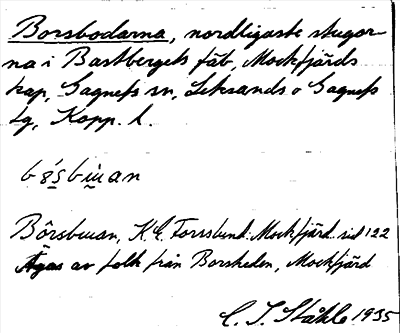 Borsbodarna, nordligaste stugor-
na i Bastbergets fäb, Mockfjärds
kap, Gagnefs sn, Leksands o Gagnefs
tg, Kopp. l.
Bôrsbuan, K.E. Forsslund: Mockfjärd sid 122
Ägas av folk från Borsheden, Mockfjärd
C. I. Ståhle 1935